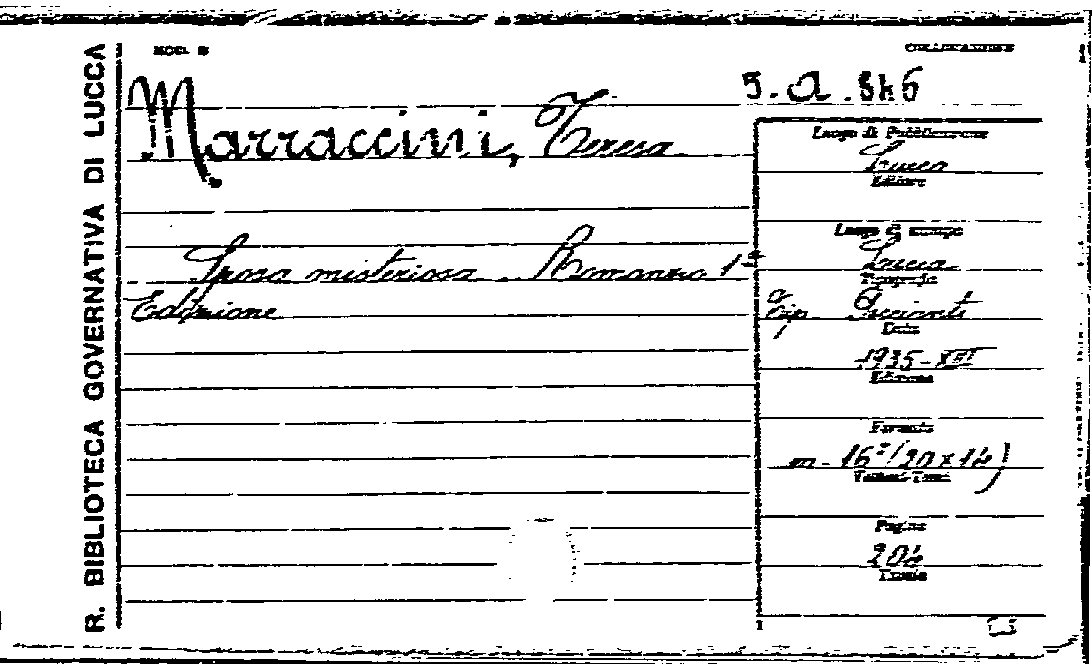 R. BIBLIOTECA GOVERNATIVA DI LUCCA
MOD. B
COLLOCAZIONE
Marraccini, Teresa
Sposa misteriosa. Romanzo 1ª
Edizione
Luogo di Pubblicazione
Lucca
Editore
Luogo di stampa
Lucca
Tipografia
Tip. Guicciardi
Data
1935-XIII
Edizione
Formato
in-16° (20x14)
Volumi-Tomi
Pagine
204
Tavole